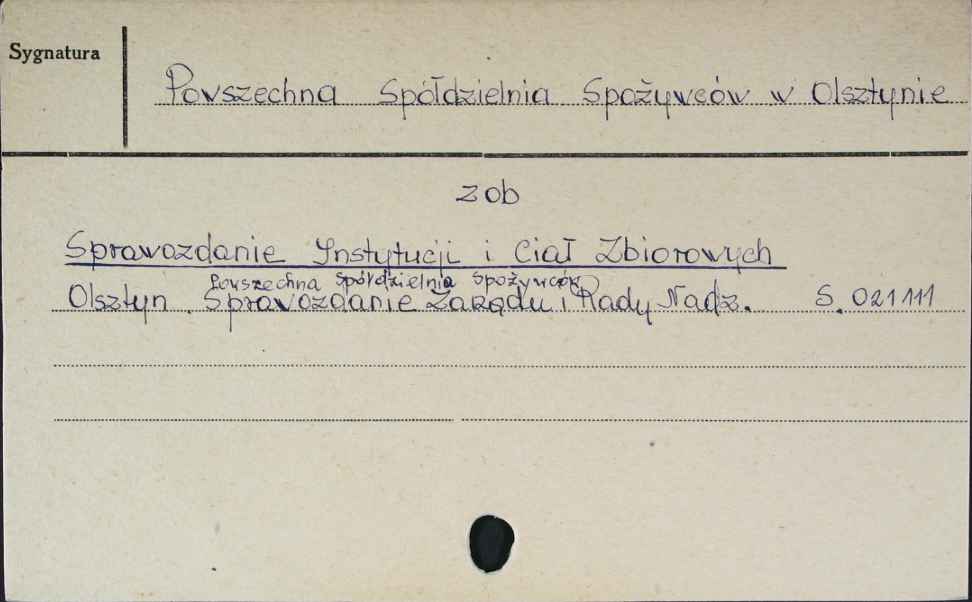 Sygnatura
Powszechna Spółdzielnia Spożywców w Olsztynie
zob
Sprawozdanie Instytucji i Ciał Zbiorowych
Powszechna Spółdzielnia Spożywców
Olsztyn. Sprawozdanie Zarządu i Rady Nadz. S. 021111